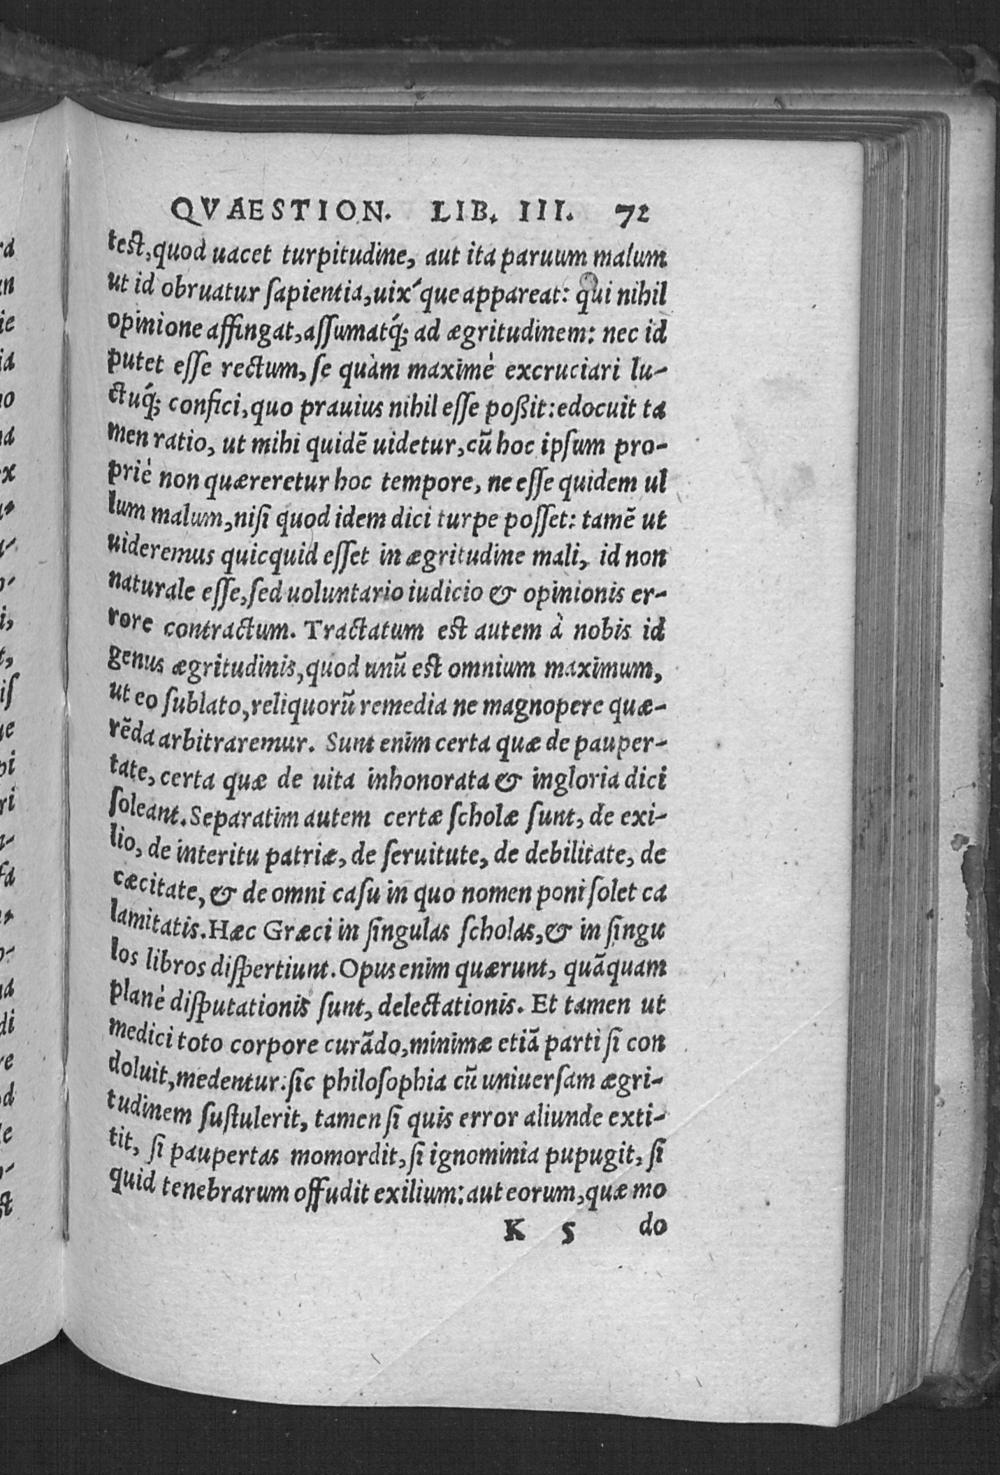 QVAESTION. LIB. III. 72
test, quod uacet turpitudine, aut ita paruum malum
ut id obruatur sapientia, uix´que appareat: qui nihil
opinione affingat, assumatq́; ad ægritudinem: nec id
putet esse rectum, se quàm maximè excruciari lu-
ctuq́; confici, quo prauius nihil esse poßit: edocuit ta
men ratio, ut mihi quidẽ uidetur, cũ hoc ipsum pro-
priè non quæreretur hoc tempore, ne esse quidem ul
lum malum, nisi quod idem dici turpe posset: tamẽ ut
uideremus quicquid esset in ægritudine mali, id non
naturale esse, sed uoluntario iudicio & opinionis er-
rore contractum. Tractatum est autem à nobis id
genus ægritudinis, quod unũ est omnium maximum,
ut eo sublato, reliquorũ remedia ne magnopere quæ-
rẽda arbitraremur. Sunt enim certa quæ de pauper-
tate, certa quæ de uita inhonorata & ingloria dici
soleant. Separatim autem certæ scholæ sunt, de exi-
lio, de interitu patriæ, de seruitute, de debilitate, de
cæcitate, & de omni casu in quo nomen poni solet ca
lamitatis. Hæc Græci in singulas scholas, & in singu
los libros dispertiunt. Opus enim quærunt, quãquam
planè disputationis sunt, delectationis. Et tamen ut
medici toto corpore curãdo, minimæ etiã parti si con
doluit, medentur: sic philosophia cũ uniuersam ægri-
tudinem sustulerit, tamen si quis error aliunde exti-
tit, si paupertas momordit, si ignominia pupugit, si
quid tenebrarum offudit exilium: aut eorum, quæ mo
K 5 do